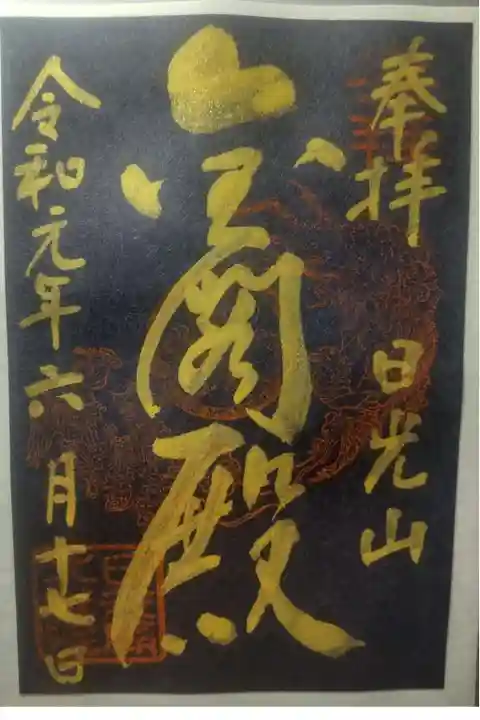 奉拝
日光山
金閣殿
令和元年六月十七日